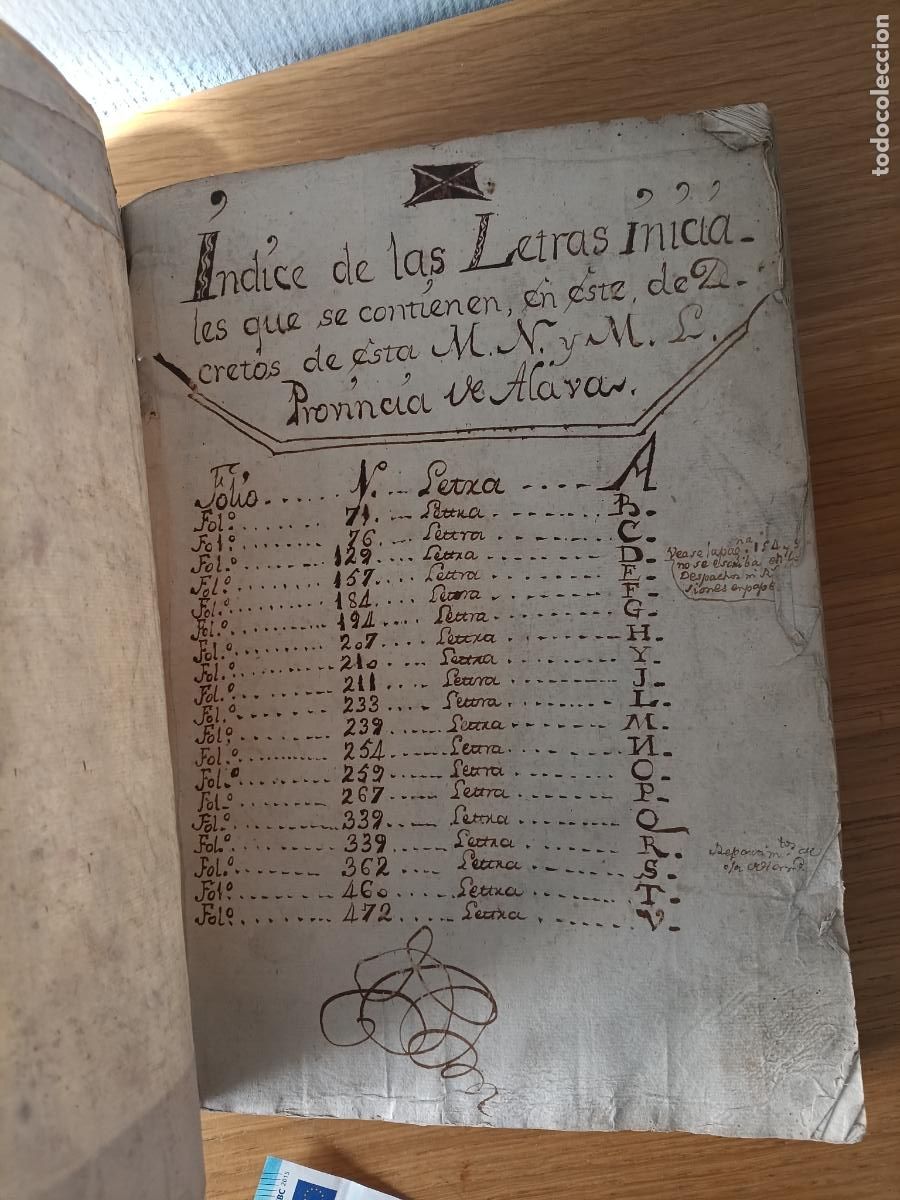 Índice de las Letras inicia-
les que se contienen, en éste, de D-
cretos de ésta M. N. y M. L.
Provincia de Alava.
Folio N. Letra A
Fol.º 71. Lettra B.
Fol.º 76. Lettra C
Fol.º 129. Lettra D
Fol.º 157. Lettra E
Fol.º 184. Letra F
Fol.º 194. Lettra G
Fol.º 207. Lettra H
Fol.º 210. Lettra Y
Fol.º 211. Lettra J
Fol.º 233. Lettra L
Fol.º 239. Lettra M
Fol.º 254. Lettra N
Fol.º 259. Lettra O
Fol.º 267. Lettra P
Fol.º 339. Lettra Q
Fol.º 339. Lettra R
Fol.º 362. Lettra S
Fol.º 460. Lettra T
Fol.º 472. Lettra V
Vease la pag.na 154. y
no se escriba en
Despachos
todocoleccion
BC 2015